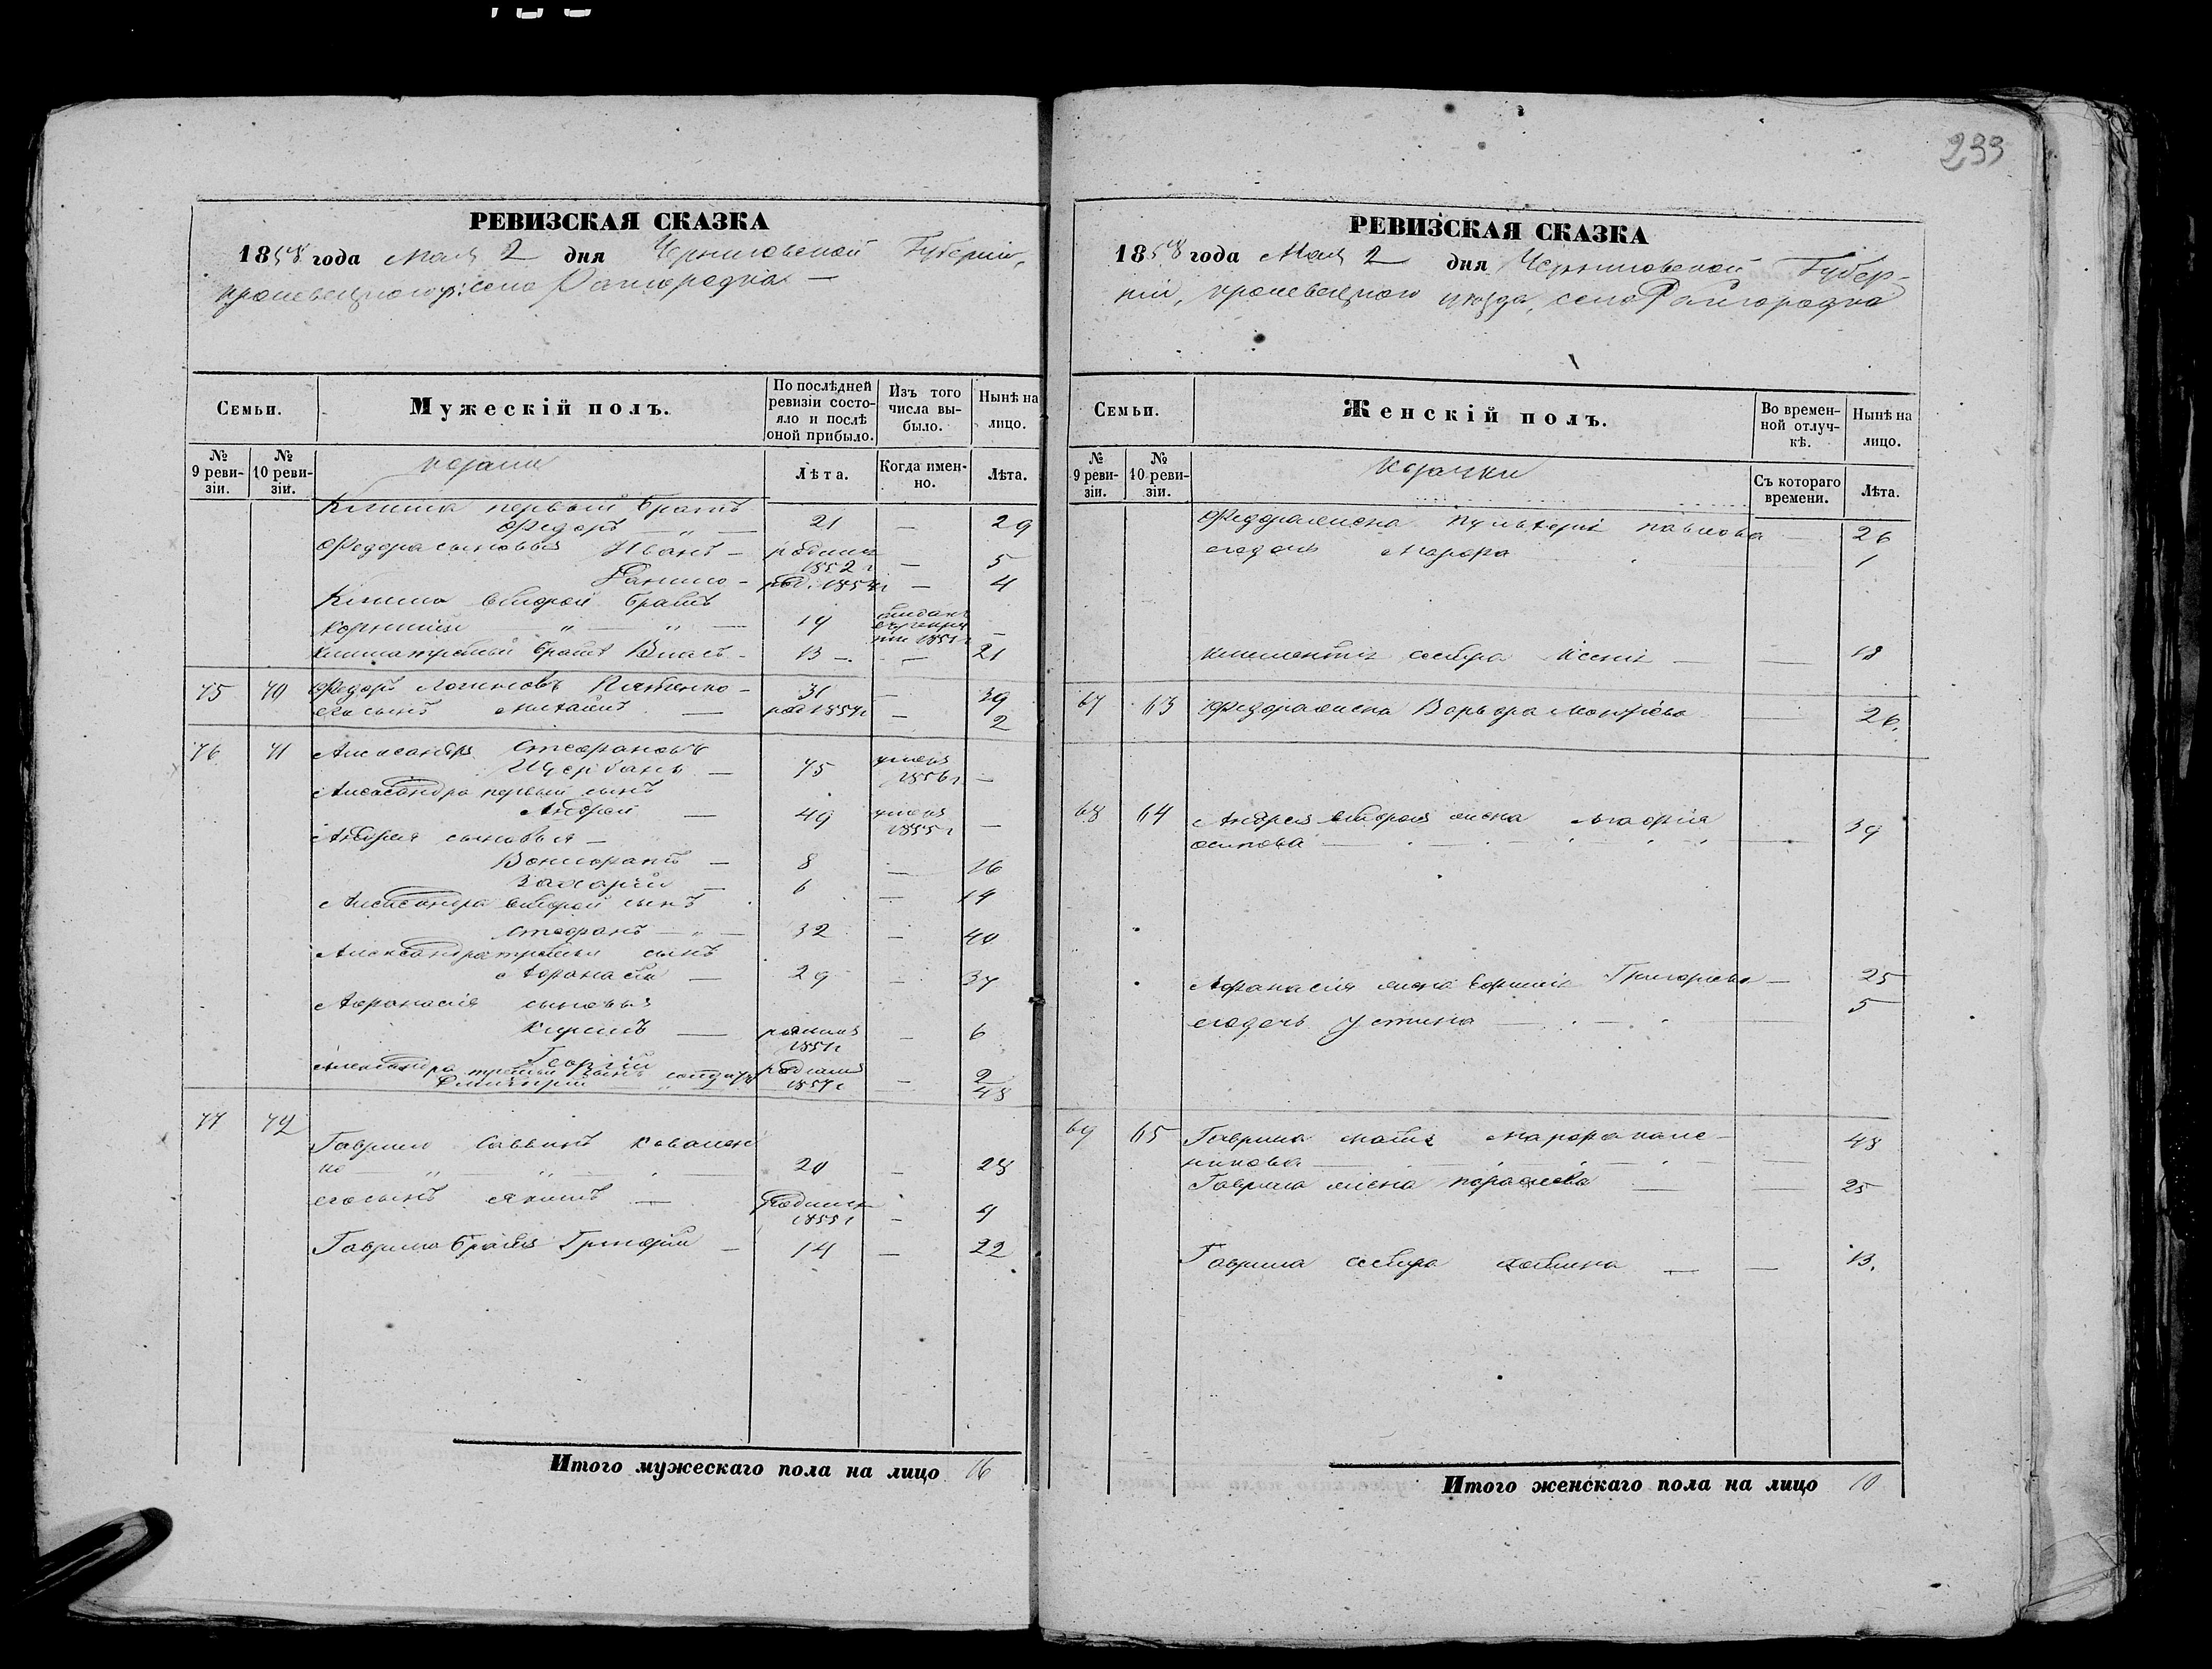 233
РЕВИЗСКАЯ СКАЗКА
1858 года Мая 2 дня Черниговской Губерніи,
кролевецкого у: села Райгородка —
Семьи.
Мужескій полъ.
По послѣдней ревизіи состояло и послѣ оной прибыло.
Изъ того числа выбыло.
Нынѣ на лицо.
№ 9 ревизіи.
№ 10 ревизіи.
козаки
Лѣта.
Когда именно.
Лѣта.
Клима первый братъ
Федоръ — „ — 21 — 29
Федора сыновья Иванъ — родился 1852 г — 5
Данило — род. 1854 г — 4
Клима второй братъ
Корнилій — „ — „ — 19 —
1851 г
Клима третій братъ Власъ — 13 — — 21
75 70 Федоръ Логиновъ — 31 — 39
его сынъ Михаилъ — — 2
76 71 Александръ Стефановъ
Щербань — 75 умеръ 1856 г —
Александра первый сынъ
Андрей — 49 умеръ 1855 г —
Андрея сыновья —
— 8 — 16
Захарій — 6 — 14
Александра второй сынъ
Стефанъ — „ — 32 — 40
Александра третій сынъ
Афанасій — 29 — 37
Афанасія сыновья
Кирилъ — родился 1851 г — 6
Георгій
Александра третій сынъ
Димитрій — 2
48
77 72
Гаврило Саввинъ Ковален
ко „ „ — 20 — 28
его сынъ Якимъ — родился 1855 г — 4
Гаврила братъ Григорій — 14 — 22
Итого мужескаго пола на лицо 16
РЕВИЗСКАЯ СКАЗКА
1858 года Мая 2 дня Черниговской Губер-
ніи, кролевецкого уѣзда, села Райгородка
Семьи.
Женскій полъ.
Во временной отлучкѣ.
Нынѣ на лицо.
№ 9 ревизіи.
№ 10 ревизіи.
Козачки
Съ котораго времени.
Лѣта.
Федора жена Пульхерія Павлова — 26
его дочь Марфа 1
сестра Ксенія — — 18
67 63 Федора жена Варвара — 26.
68 64 Андрея вторая жена Марфа
Осипова — 39
Афанасія жена Григорьева — 25
его дочь Устина — 5
69 65 Гаврила мать Марфа
— 48
Гаврила жена — — 25
Гаврила сестра — — 13.
Итого женскаго пола на лицо 10